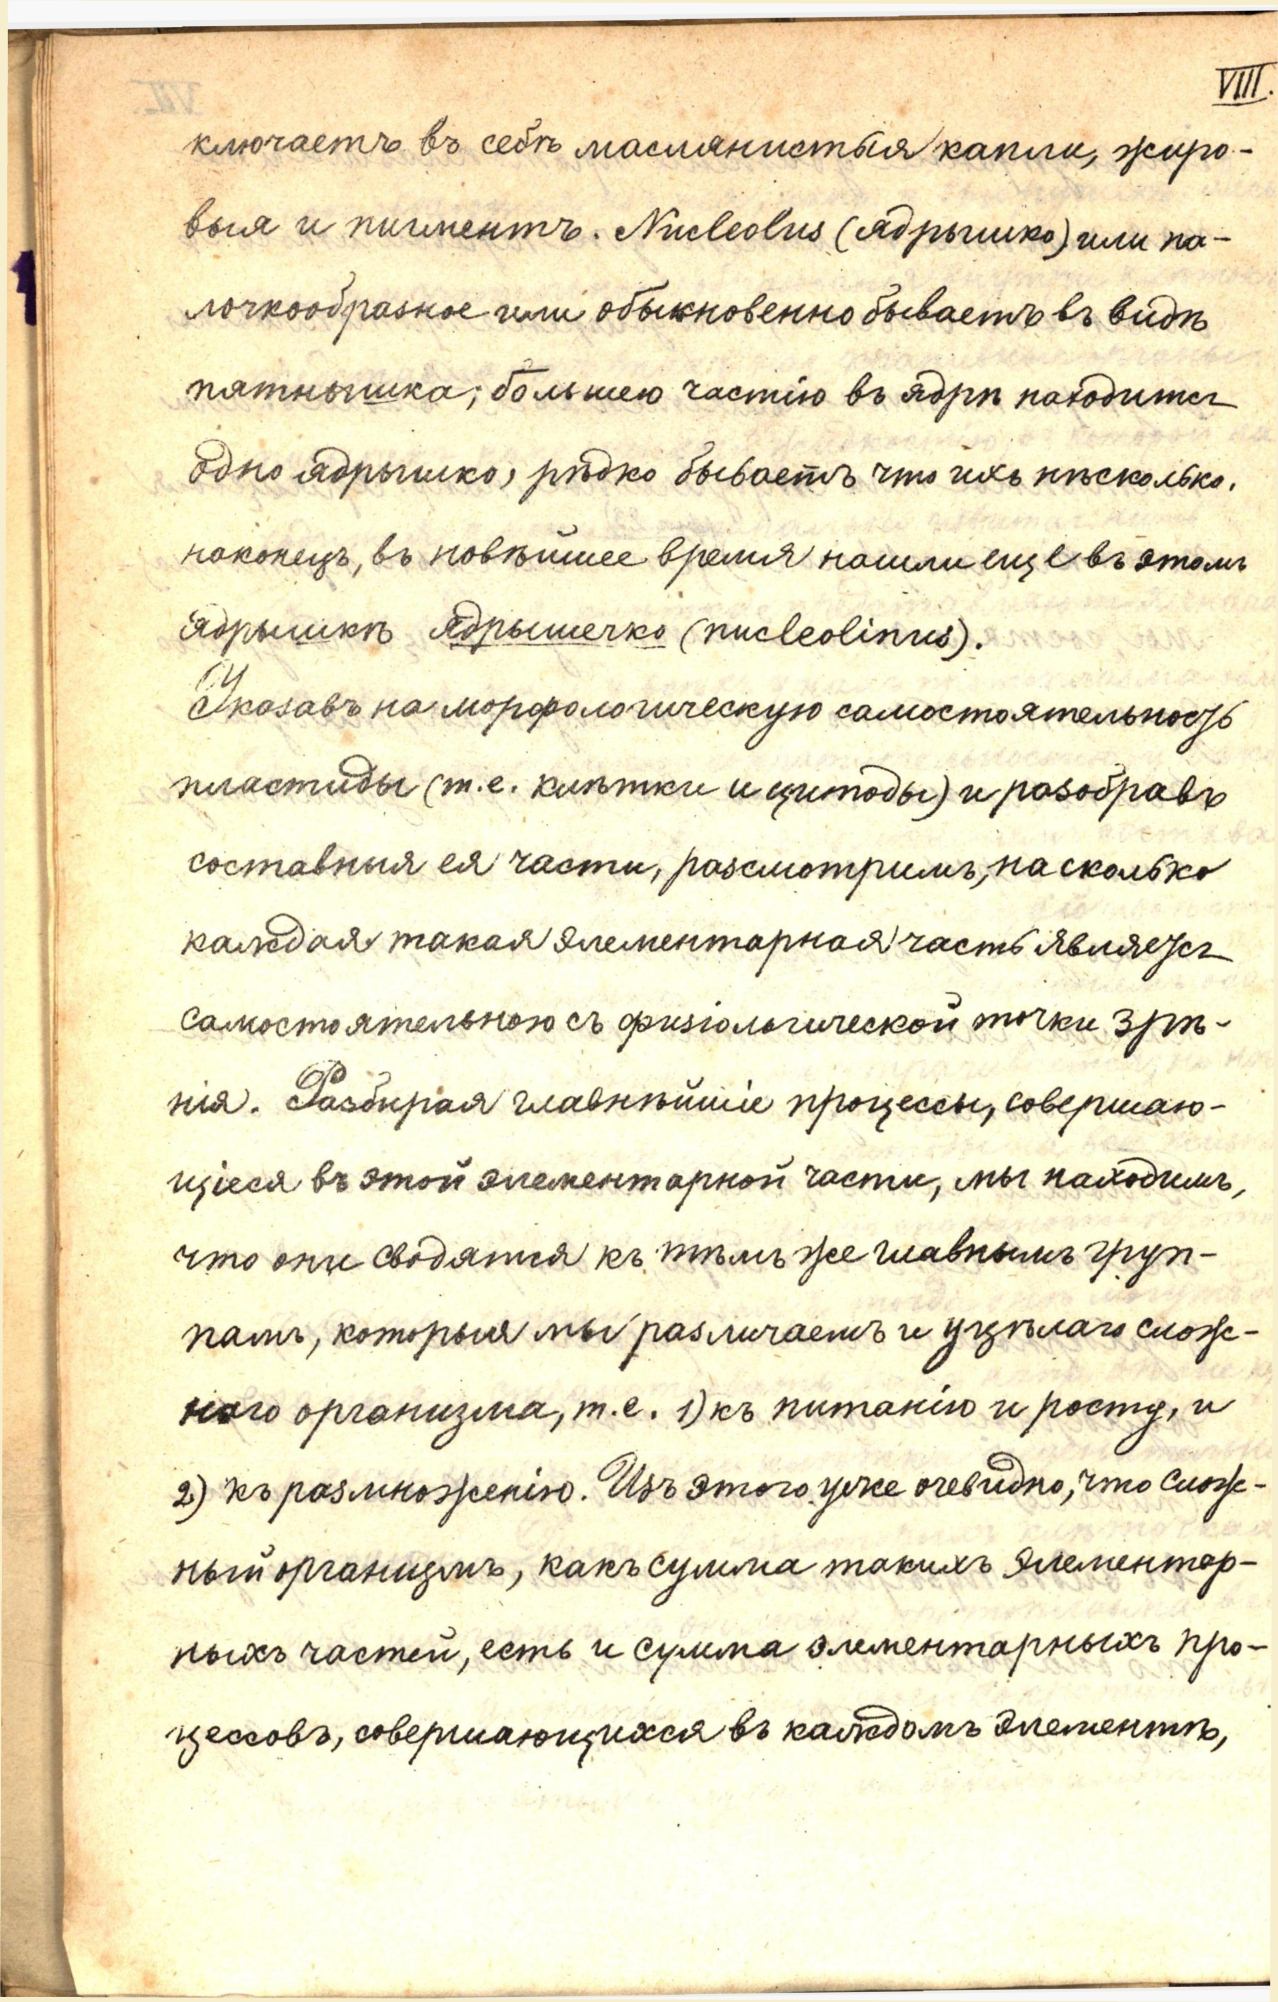 VIII.
ключаетъ въ себѣ маслянистыя капли, жиро-
выя и пигментъ. Nucleolus (ядрышко) или па-
лочкообразное или обыкновенно бываетъ въ видѣ
пятнышка; большею частію въ ядрѣ находится
одно ядрышко, рѣдко бываетъ что ихъ нѣсколько.
наконецъ, въ новѣйшее время нашли еще въ этомъ
ядрышкѣ ядрышечко (nucleolinus).
Указавъ на морфологическую самостоятельность
пластиды (т.е. клѣтки и цитоды) и разобравъ
составныя ея части, разсмотримъ, насколько
каждая такая элементарная часть является
самостоятельною съ физіологической точки зрѣ-
нія. Разбирая главнѣйшіе процессы, совершаю-
щіеся въ этой элементарной части, мы находимъ,
что они сводятся къ тѣмъ же главнымъ груп-
памъ, которыя мы различаемъ и у цѣлаго слож-
наго организма, т.е. 1) къ питанію и росту, и
2) къ размноженію. Изъ этого уже очевидно, что слож-
ный организмъ, какъ сумма такихъ элементар-
ныхъ частей, есть и сумма элементарныхъ про-
цессовъ, совершающихся въ каждомъ элементѣ,